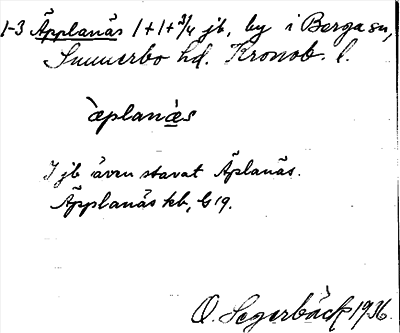 1-3 Äpplanäs 1+1+3/4 jb, by i Berga sn,
Sunnerbo hd. Kronob. l.
àplanä̀s
I jb även stavat Äplanäs.
Äpplanäs kb, G 19.
O. Segerbäck 1936.